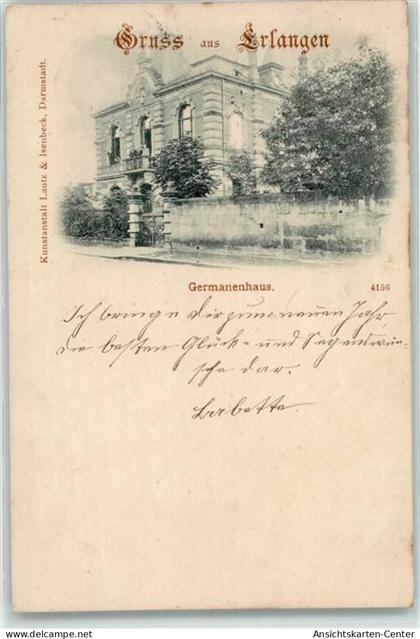 Gruss aus Erlangen
Kunstanstalt Lautz & Isenbeck, Darmstadt.
Germanenhaus.
4156
Ich bringe dir zum neuen Jahr
die besten Glück- und Segenswün-
sche dar.
Babette.
Ansichtskarten-Center